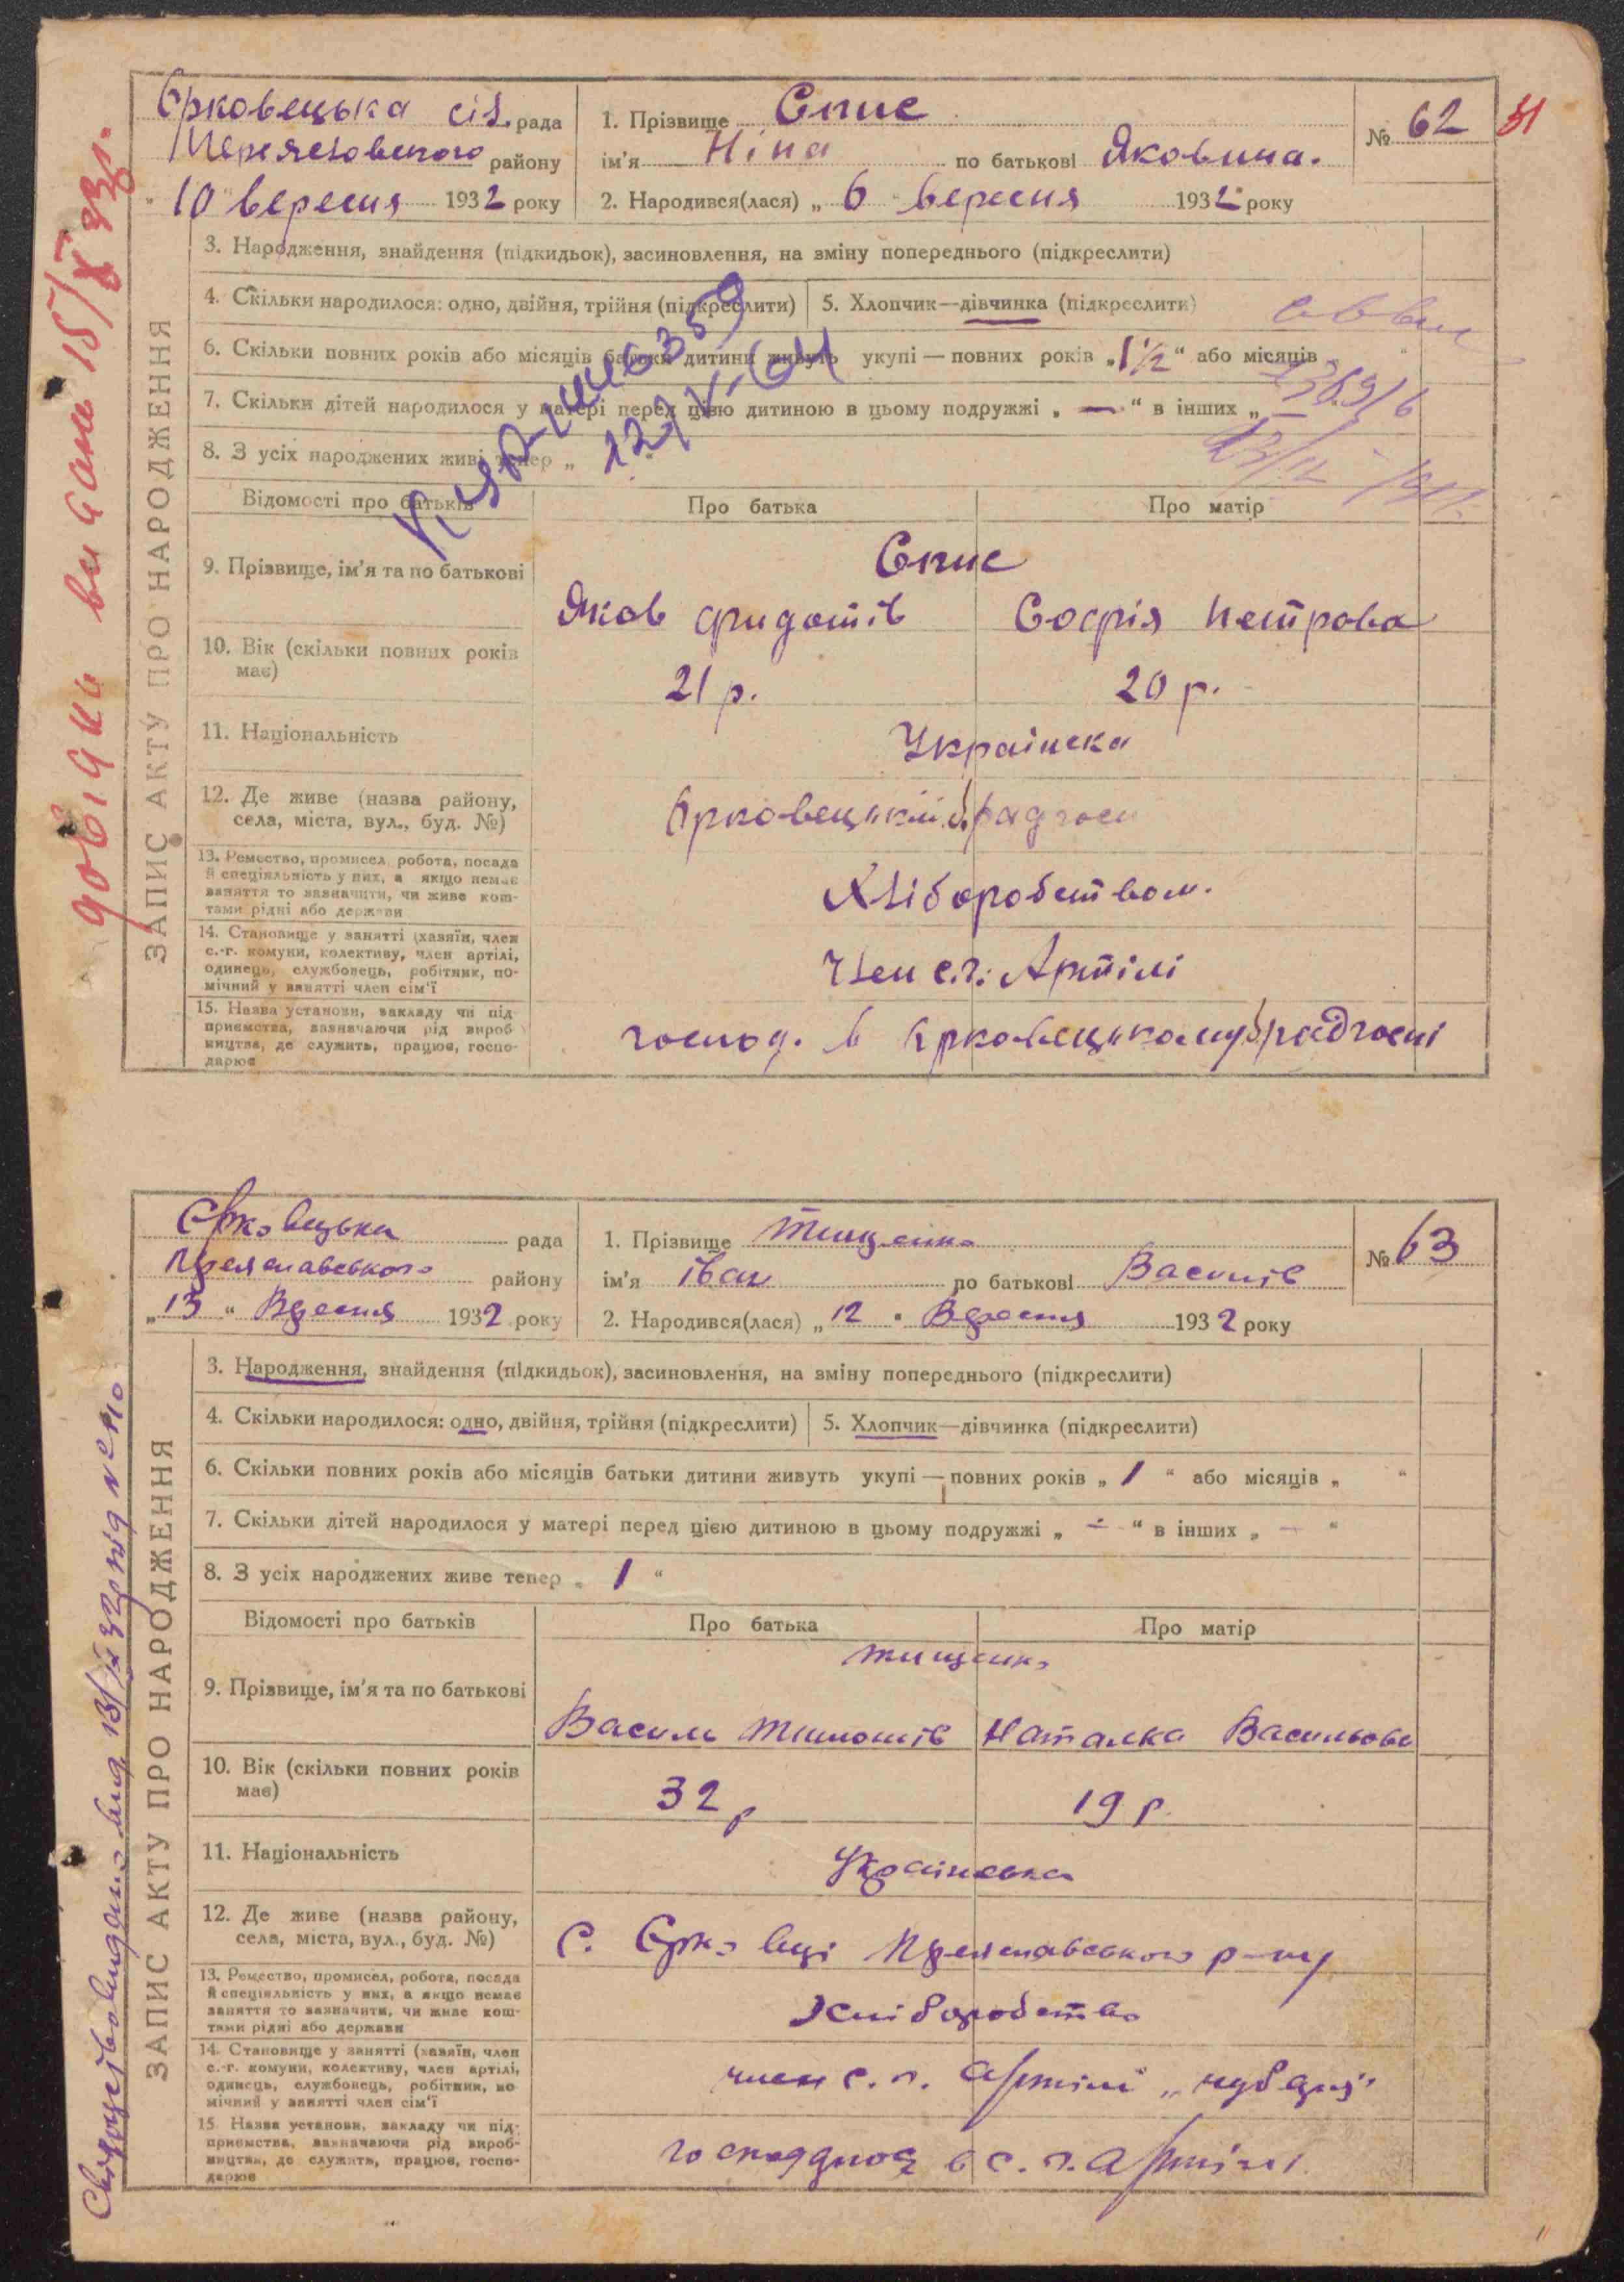 Єрковецька сіл. рада
Переяславського району
" 10 " вересня 1932 року
1. Прізвище Спис
ім'я Ніна по батькові Яковина.
2. Народився(лася) „ 6 " вересня 1932 року
№ 62
31
3. Народження, знайдення (підкидьок), засиновлення, на зміну попереднього (підкреслити)
4. Скільки народилося: одно, двійня, трійня (підкреслити)
5. Хлопчик—дівчинка (підкреслити)
6. Скільки повних років або місяців батьки дитини живуть укупі — повних років „ 1 ½ " або місяців „ "
7. Скільки дітей народилося у матері перед цією дитиною в цьому подружжі „ — " в інших „ —
8. З усіх народжених живі тепер „
Відомості про батьків
Про батька
Про матір
9. Прізвище, ім'я та по батькові
Спис
Яков Федотів
Софія Петрова
10. Вік (скільки повних років має)
21 р.
20 р.
11. Національність
Українска
12. Де живе (назва району, села, міста, вул., буд. №)
Єрковецький бурадгосп
13. Ремество, промисел, робота, посада
й спеціяльність у них, а якщо немає
заняття то зазначити, чи живе кош-
тами рідні або держави
Хліборобством.
14. Становище у занятті (хазяїн, член
с.-г. комуни, колективу, член артілі,
одинець, службовець, робітник, по-
мічний у занятті член сім'ї
Член с.г. Артілі
15. Назва установи, закладу чи під
приємства, зазначаючи рід вироб
ництва, де служить, працює, госпо-
дарює
господ. в Єрковецькому бурадгоспі
ЗАПИС АКТУ ПРО НАРОДЖЕННЯ
довідки видані 15/V 33р.
Єрковецька рада
Переяславського району
„ 13 " Вересня 1932 року
1. Прізвище Тищенко
ім'я Іван по батькові Василів
2. Народився(лася) „ 12 " Вересня 1932 року
№ 63
3. Народження, знайдення (підкидьок), засиновлення, на зміну попереднього (підкреслити)
4. Скільки народилося: одно, двійня, трійня (підкреслити)
5. Хлопчик—дівчинка (підкреслити)
6. Скільки повних років або місяців батьки дитини живуть укупі — повних років „ 1 " або місяців „ "
7. Скільки дітей народилося у матері перед цією дитиною в цьому подружжі „ — " в інших „ — "
8. З усіх народжених живе тепер „ 1 "
Відомості про батьків
Про батька
Про матір
9. Прізвище, ім'я та по батькові
Тищенко
Василь Тимошів
Наталка Васильова
10. Вік (скільки повних років має)
32 р
19 р.
11. Національність
Українська
12. Де живе (назва району, села, міста, вул., буд. №)
С. Єрковці Переяславського р-ну
13. Ремество, промисел, робота, посада
й спеціяльність у них, а якщо немає
заняття то зазначити, чи живе кош-
тами рідні або держави
Хліборобство
14. Становище у занятті (хазяїн, член
с.-г. комуни, колективу, член артілі,
одинець, службовець, робітник, по
мічний у занятті член сім'ї
член с. г. Артілі
15. Назва установи, закладу чи під-
приємства, зазначаючи рід вироб-
ництва, де служить, працює, госпо-
дарює
в с. г. Артілі.
ЗАПИС АКТУ ПРО НАРОДЖЕННЯ